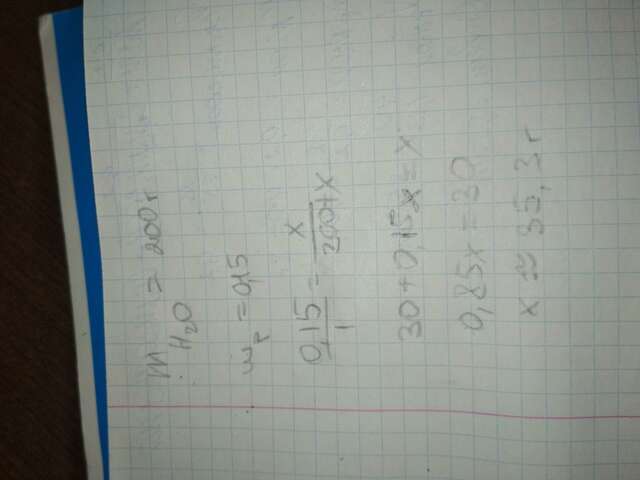 m H₂O = 200г
w₂ = 0,15
0,15/1 = x/(200+x)
30+0,15x = x
0,85x = 30
x ≈ 35,3г